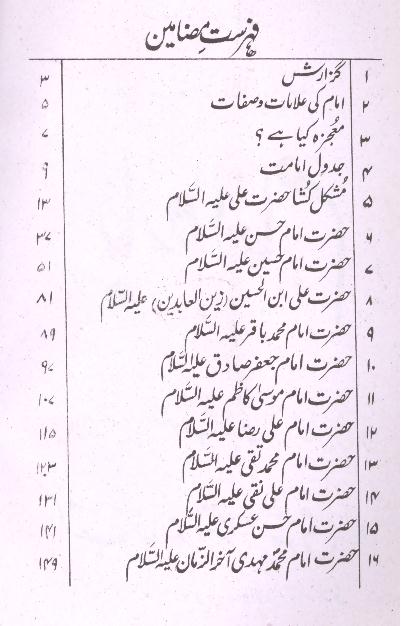 فہرستِ مضامین
۱ گزارش ۳
۲ امام کی علامات و صفات ۵
۳ معجزہ کیا ہے ؟ ۷
۴ جدول امامت ۹
۵ مُشکل کُشا حضرت علی علیہ السَّلام ۱۳
۶ حضرت امام حسن علیہ السَّلام ۳۷
۷ حضرت امام حسین علیہ السَّلام ۵۱
۸ حضرت علی ابن الحسین (زین العابدین) علیہ السَّلام ۸۱
۹ حضرت امام محمد باقر علیہ السَّلام ۸۹
۱۰ حضرت امام جعفر صادق علیہ السَّلام ۹۷
۱۱ حضرت امام موسیٰ کاظم علیہ السَّلام ۱۰۷
۱۲ حضرت امام علی رضا علیہ السَّلام ۱۱۵
۱۳ حضرت امام محمد تقی علیہ السَّلام ۱۲۳
۱۴ حضرت امام علی نقی علیہ السَّلام ۱۳۱
۱۵ حضرت امام حسن عسکری علیہ السَّلام ۱۴۱
۱۶ حضرت امام محمدؐ مہدی آخر الزّمان علیہ السَّلام ۱۴۹